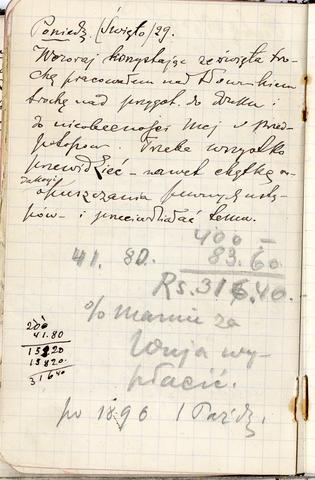 Poniedz. (Święto) 29.
Wczoraj korzystając ze święta tro-
chę pracowałem nad Słownikiem
trochę nad przygot. do druku i
do nieobecności mej w
Trzeba wszystko
przewidzieć – nawet chętkę
opuszczania pewnych ustę-
pów – i przeciwdziałać temu.
400 –
41. 80. 83.60
Rs. 316.40.
% Mamie za
Wuja wy-
płacić.
po 1896 1 Paźdz.
200
41.80
15820
15820
31640